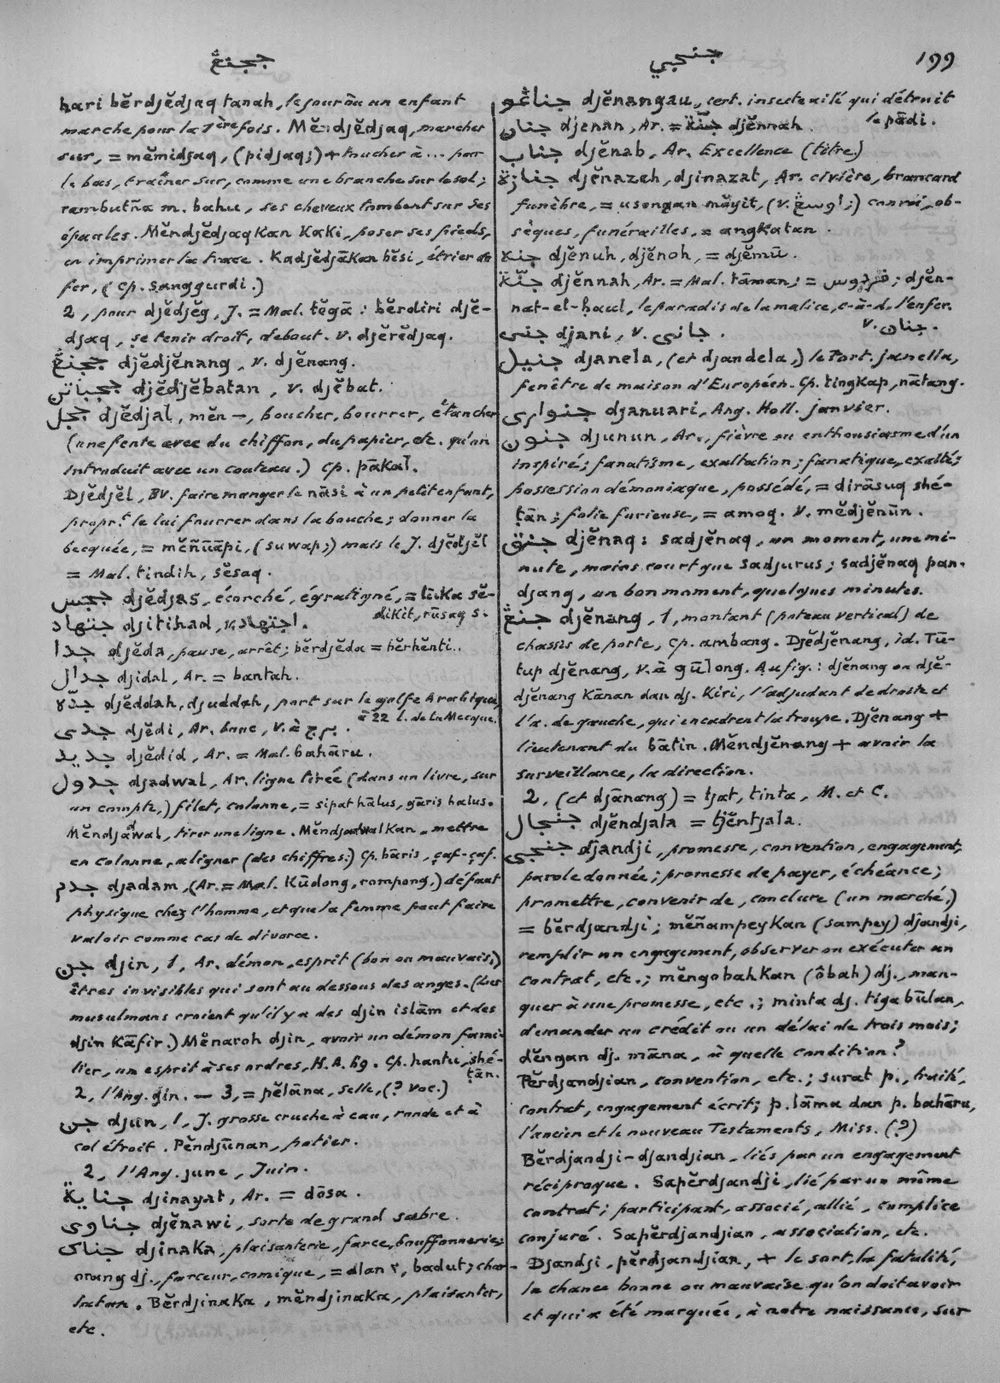 ججڠ
جنجي
199
hari bĕrdjĕdjaq tanah, le jour où un enfant
marche pour la 1ère fois. Mĕndjĕdjaq, marcher
sur, = mĕmidjaq, (pidjaq;) + toucher à... par
le bas, traîner sur, comme une branche sur le sol;
rambutña m. bahu, ses cheveux tombent sur ses
épaules. Mĕndjĕdjaqkan kaki, poser ses pieds,
en imprimer la trace. Kadjĕdjākan bĕsi, étrier de
fer, (cp. sanggurdi.)
2, pour djĕdjĕg, J. = Mal. tĕgā: bĕrdiri djĕ-
djaq, se tenir droit, debout. v. djĕrĕdjaq.
ججنڠ djĕdjĕnang, v. djĕnang.
ججباتن djĕdjĕbatan, v. djĕbat.
ججل djĕdjal, mĕn-, boucher, bourrer, étancher
(une fente avec du chiffon, du papier, etc. qu'on
introduit avec un couteau.) cp. pākal.
Djĕdjĕl, BV. faire manger le nāsi à un petit enfant,
propr.t le lui fourrer dans la bouche; donner la
becquée, = mĕñūāpi, (suwap;) mais le J. djĕdjĕl
= Mal. tindih, sĕsaq.
ججس djĕdjas, écorché, égratigné, = luka sĕ-
dikit, rūsaq s.
جتهاد djitihad, v. اجتهاد.
جدا djĕda, pause, arrêt; bĕrdjĕda = bĕrhĕnti.
جدال djidal, Ar. = bantah.
جدّة djĕddah, djuddah, port sur le golfe Arabique,
à 22 l. de la Mecque.
جدى djĕdi, Ar. bouc, v. à برج.
جديد djĕdid, Ar. = Mal. bahāru.
جدول djadwal, Ar. ligne tirée (dans un livre, sur
un compte,) filet, colonne, = sipat hālus, gāris halus.
Mĕndjadwal, tirer une ligne. Mĕndjadwalkan, mettre
en colonne, aligner (des chiffres.) Cp. bāris, çaf-çaf.
جدم djadam, (Ar. = Mal. Kūdong, rompong.) défaut
physique chez l'homme, et que la femme peut faire
valoir comme cas de divorce.
جن djin, 1, Ar. démon, esprit (bon ou mauvais;)
êtres invisibles qui sont au dessous des anges. (Les
musulmans croient qu'il y a des djin islām et des
djin Kāfir.) Mĕnaroh djin, avoir un démon fami-
lier, un esprit à ses ordres, H.A. 69. Cp. hantu, shé-
ṭān.
2, l'Ang. gin. — 3, = pĕlāna, selle, (? voc.)
جن djun, 1, J. grosse cruche à eau, ronde et à
col étroit. Pĕndjūnan, potier.
2, l'Ang. june, Juin.
جناية djinayat, Ar. = dōsa.
جناوى djĕnawi, sorte de grand sabre.
جناك djinaka, plaisanterie, farce, bouffonnerie;
orang dj., farceur, comique, = alan², badut; char-
latan. Bĕrdjinaka, mĕndjinaka, plaisanter,
etc.
جناڠو djĕnangau, cert. insecte ailé qui détruit
le pādi.
جنان djenan, Ar. = جنّة djĕnnah.
جناب djĕnab, Ar. Excellence (titre.)
جنازة djĕnazeh, djinazat, Ar. civière, brancard
funèbre, = usongan māyit, (v. اوسڠ;) convoi, ob-
sèques, funérailles, = angkatan.
جنه djĕnuh, djĕnoh, = djĕmū.
جنّة djĕnnah, Ar. = Mal. tāman; = فردوس; djĕn-
nat-el-haul, le paradis de la malice, c-à-d. l'enfer.
v. جنان.
جنى djani, v. جانى.
جنيل djanela, (et djandela,) le Port. janella,
fenêtre de maison d'Européen. Cp. tingkap, nātang.
جنوارى djanuari, Ang. Holl. janvier.
جنون djunun, Ar., fièvre ou enthousiasme d'un
inspiré; fanatisme, exaltation; fanatique, exalté;
possession démoniaque, possédé, = dirāsuq shé-
ṭān; folie furieuse, = amoq. v. medjĕnūn.
جنق djĕnaq: sadjĕnaq, un moment, une mi-
nute, moins court que sadjurus; sadjĕnaq pan-
djang, un bon moment, quelques minutes.
جنڠ djĕnang, 1, montant (poteau vertical) de
chassis de porte, cp. ambang. Djĕdjĕnang, id. Tū-
tup djĕnang, v. à gūlong. Au fig.: djĕnang ou djĕ-
djĕnang Kānan dan dj. Kiri, l'adjudant de droite et
l'a. de gauche, qui encadrent la troupe. Djĕnang +
lieutenant du bātin. Mĕndjĕnang + avoir la
surveillance, la direction.
2, (et djānang) = tjat, tinta, M. et C.
جنجال djĕndjala = tjĕntjala.
جنجي djandji, promesse, convention, engagement,
parole donnée; promesse de payer, échéance;
promettre, convenir de, conclure (un marché.)
= bĕrdjandji; mĕñampeykan (sampey) djandji,
remplir un engagement, observer ou exécuter un
contrat, etc.; mĕngobahkan (ôbah) dj., man-
quer à une promesse, etc.; minta dj. tiga būlan,
demander un crédit ou un délai de trois mois;
dĕngan dj. māna, à quelle condition?
Pĕrdjandjian, convention, etc.; surat p., traité,
contrat, engagement écrit; p. lāma dan p. bahāru,
l'ancien et le nouveau Testaments, Miss. (?)
Bĕrdjandji-djandjian, liés par un engagement
réciproque. Sapĕrdjandji, lié par un même
contrat; participant, associé, allié, complice
conjuré. Sapĕrdjandjian, association, etc.
- Djandji, pĕrdjandjian, + le sort, la fatalité,
la chance bonne ou mauvaise qu'on doit avoir
et qui a été marquée, à notre naissance, sur